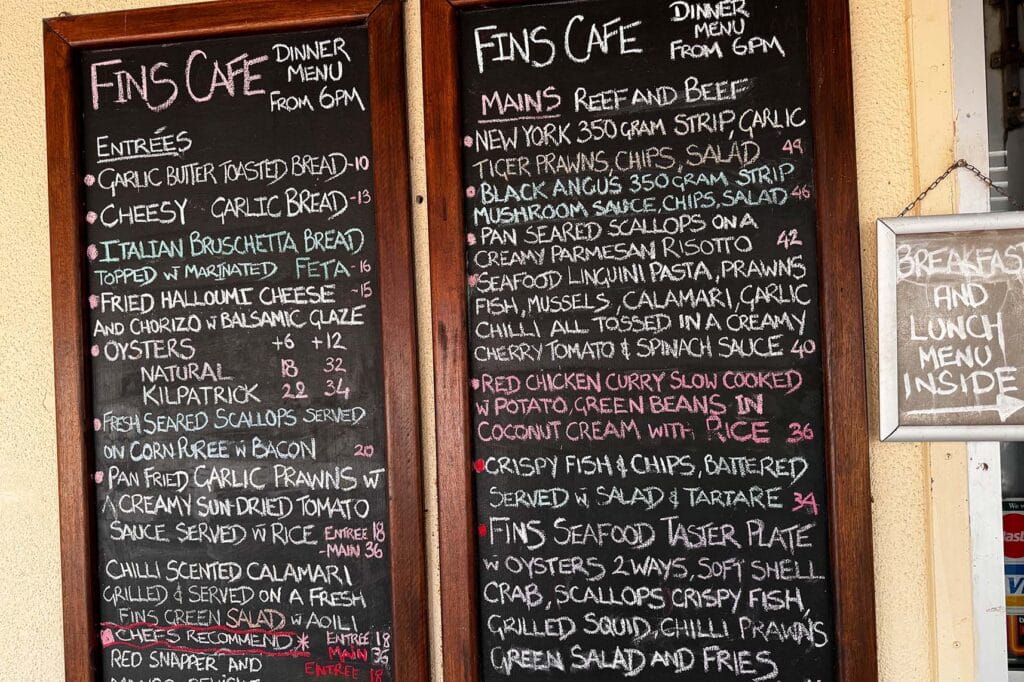 FINS CAFE DINNER
MENU
FROM 6PM
ENTRÉES
GARLIC BUTTER TOASTED BREAD-10
CHEESY GARLIC BREAD-13
ITALIAN BRUSCHETTA BREAD
TOPPED W MARINATED FETA-16
FRIED HALLOUMI CHEESE -15
AND CHORIZO W BALSAMIC GLAZE
OYSTERS +6 +12
NATURAL 18 32
KILPATRICK 22 34
FRESH SEARED SCALLOPS SERVED
ON CORN PUREE W BACON 20
PAN FRIED GARLIC PRAWNS W
A CREAMY SUN-DRIED TOMATO
SAUCE SERVED W RICE ENTREE 18
-MAIN 36
CHILLI SCENTED CALAMARI
GRILLED & SERVED ON A FRESH
FINS GREEN SALAD W AOILI
CHEFS RECOMMEND * ENTRÉE 18
MAIN 36
RED SNAPPER AND ENTREE 18
FINS CAFE DINNER
MENU
FROM 6PM
MAINS REEF AND BEEF
NEW YORK 350 GRAM STRIP, GARLIC
TIGER PRAWNS, CHIPS, SALAD 49
BLACK ANGUS 350 GRAM STRIP
MUSHROOM SAUCE, CHIPS, SALAD 46
PAN SEARED SCALLOPS ON A
CREAMY PARMESAN RISOTTO 42
SEAFOOD LINGUINI PASTA, PRAWNS
FISH, MUSSELS, CALAMARI, GARLIC
CHILLI ALL TOSSED IN A CREAMY
CHERRY TOMATO & SPINACH SAUCE 40
RED CHICKEN CURRY SLOW COOKED
W POTATO, GREEN BEANS IN
COCONUT CREAM WITH RICE 36
CRISPY FISH & CHIPS, BATTERED
SERVED W SALAD & TARTARE 34
FINS SEAFOOD TASTER PLATE
W OYSTERS 2 WAYS, SOFT SHELL
CRAB, SCALLOPS CRISPY FISH,
GRILLED SQUID, CHILLI PRAWNS
GREEN SALAD AND FRIES
BREAKFAST
AND
LUNCH
MENU
INSIDE